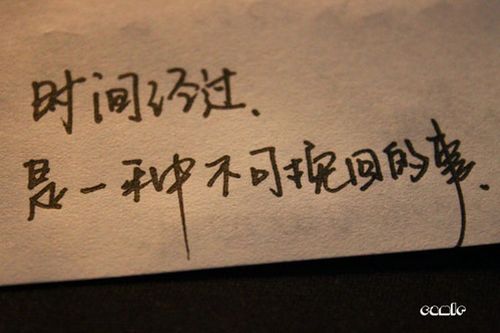 时间经过、
是一种不可挽回的事、